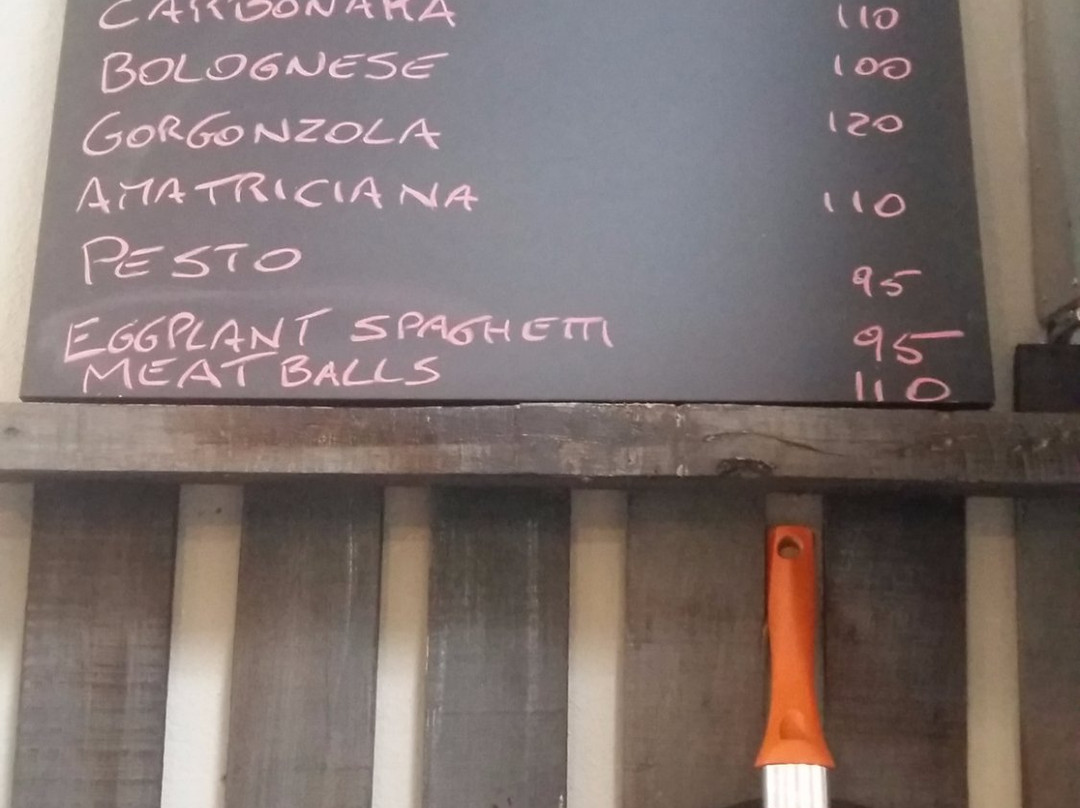 CARBONARA 110
BOLOGNESE 100
GORGONZOLA 120
AMATRICIANA 110
PESTO 95
EGGPLANT SPAGHETTI 95
MEAT BALLS 110